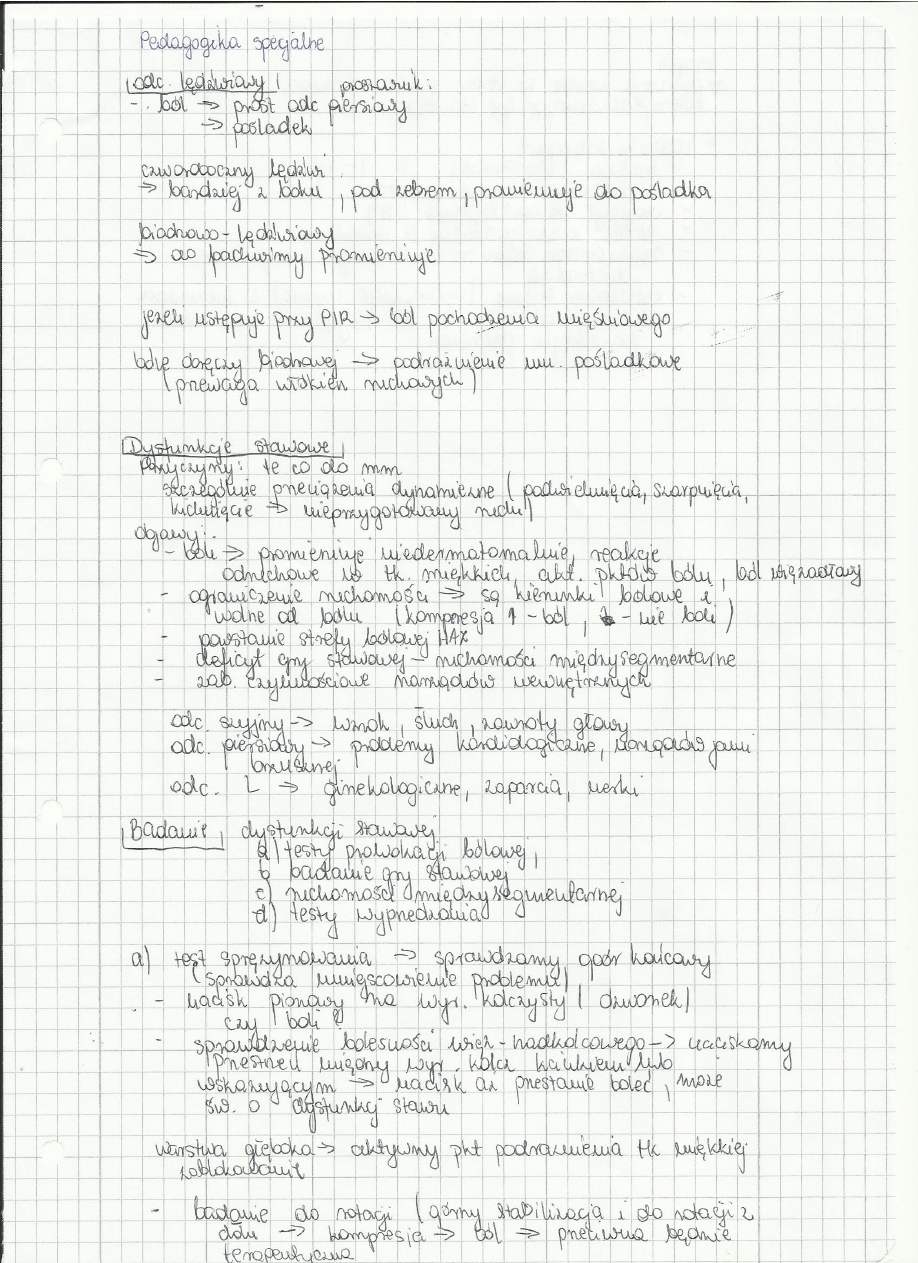 Pedagogika specjalne
odc. lędźwiowy prostownik:
- ból → prost odc piersiowy
→ pośladek
czworoboczny lędźwi
→ bardziej z boku, pod żebrem, promieniuje do pośladka
biodrowo-lędźwiowy
→ do pachwiny promieniuje
jeżeli ustępuje przy PIR → ból pochodzenia mięśniowego
bóle obręczy biodrowej → podrażnienie mm. pośladkowe
(przewaga włókien ruchowych)
Dysfunkcje stawowe
Przyczyny: te co do mm
szczególnie przeciążenia dynamiczne (podwichnięcia, szarpnięcia,
kichnięcie → nieprzygotowany ruch)
objawy:
- ból → promieniuje niedermatomalnie, reakcje
odruchowe w tk. miękkich, akt. pktów bólu, ból więzadłowy
- ograniczenie ruchomości → są kierunki bólowe i
wolne od bólu (kompresja ↑ - ból, - nie boli)
- powstanie strefy bólowej HAZ
- deficyt gry stawowej - ruchomości międzysegmentarne
- zab. czynnościowe narządów wewnętrznych
odc. szyjny → wzrok, słuch, zawroty głowy
odc. piersiowy → problemy kardiologiczne, narządów jamy
brzusznej
odc. L → ginekologiczne, zaparcia, nerki
Badanie dysfunkcji stawowej
a) testy prowokacji bólowej,
b) badanie gry stawowej
c) ruchomości międzysegmentarnej
d) testy wyprzedzania
a) test sprężynowania → sprawdzamy opór końcowy
(sprawdza umiejscowienie problemu)
- nacisk pionowy na wyr. kolczysty (dzwonek)
czy boli?
- sprawdzenie bolesności więz-nadkolcowego → naciskamy
przestrzeń między wyr. kolcz kciukiem lub
wskazującym → nacisk aż przestanie boleć, może
św. o dysfunkcj stawu
warstwa głęboka → aktywny pkt podrażnienia tk miękkiej
zablokowanie
- badanie do rotacji (górny stabilizacja i do rotacji z
dołu → kompresja → ból → przeciwna będzie
terapeutyczna